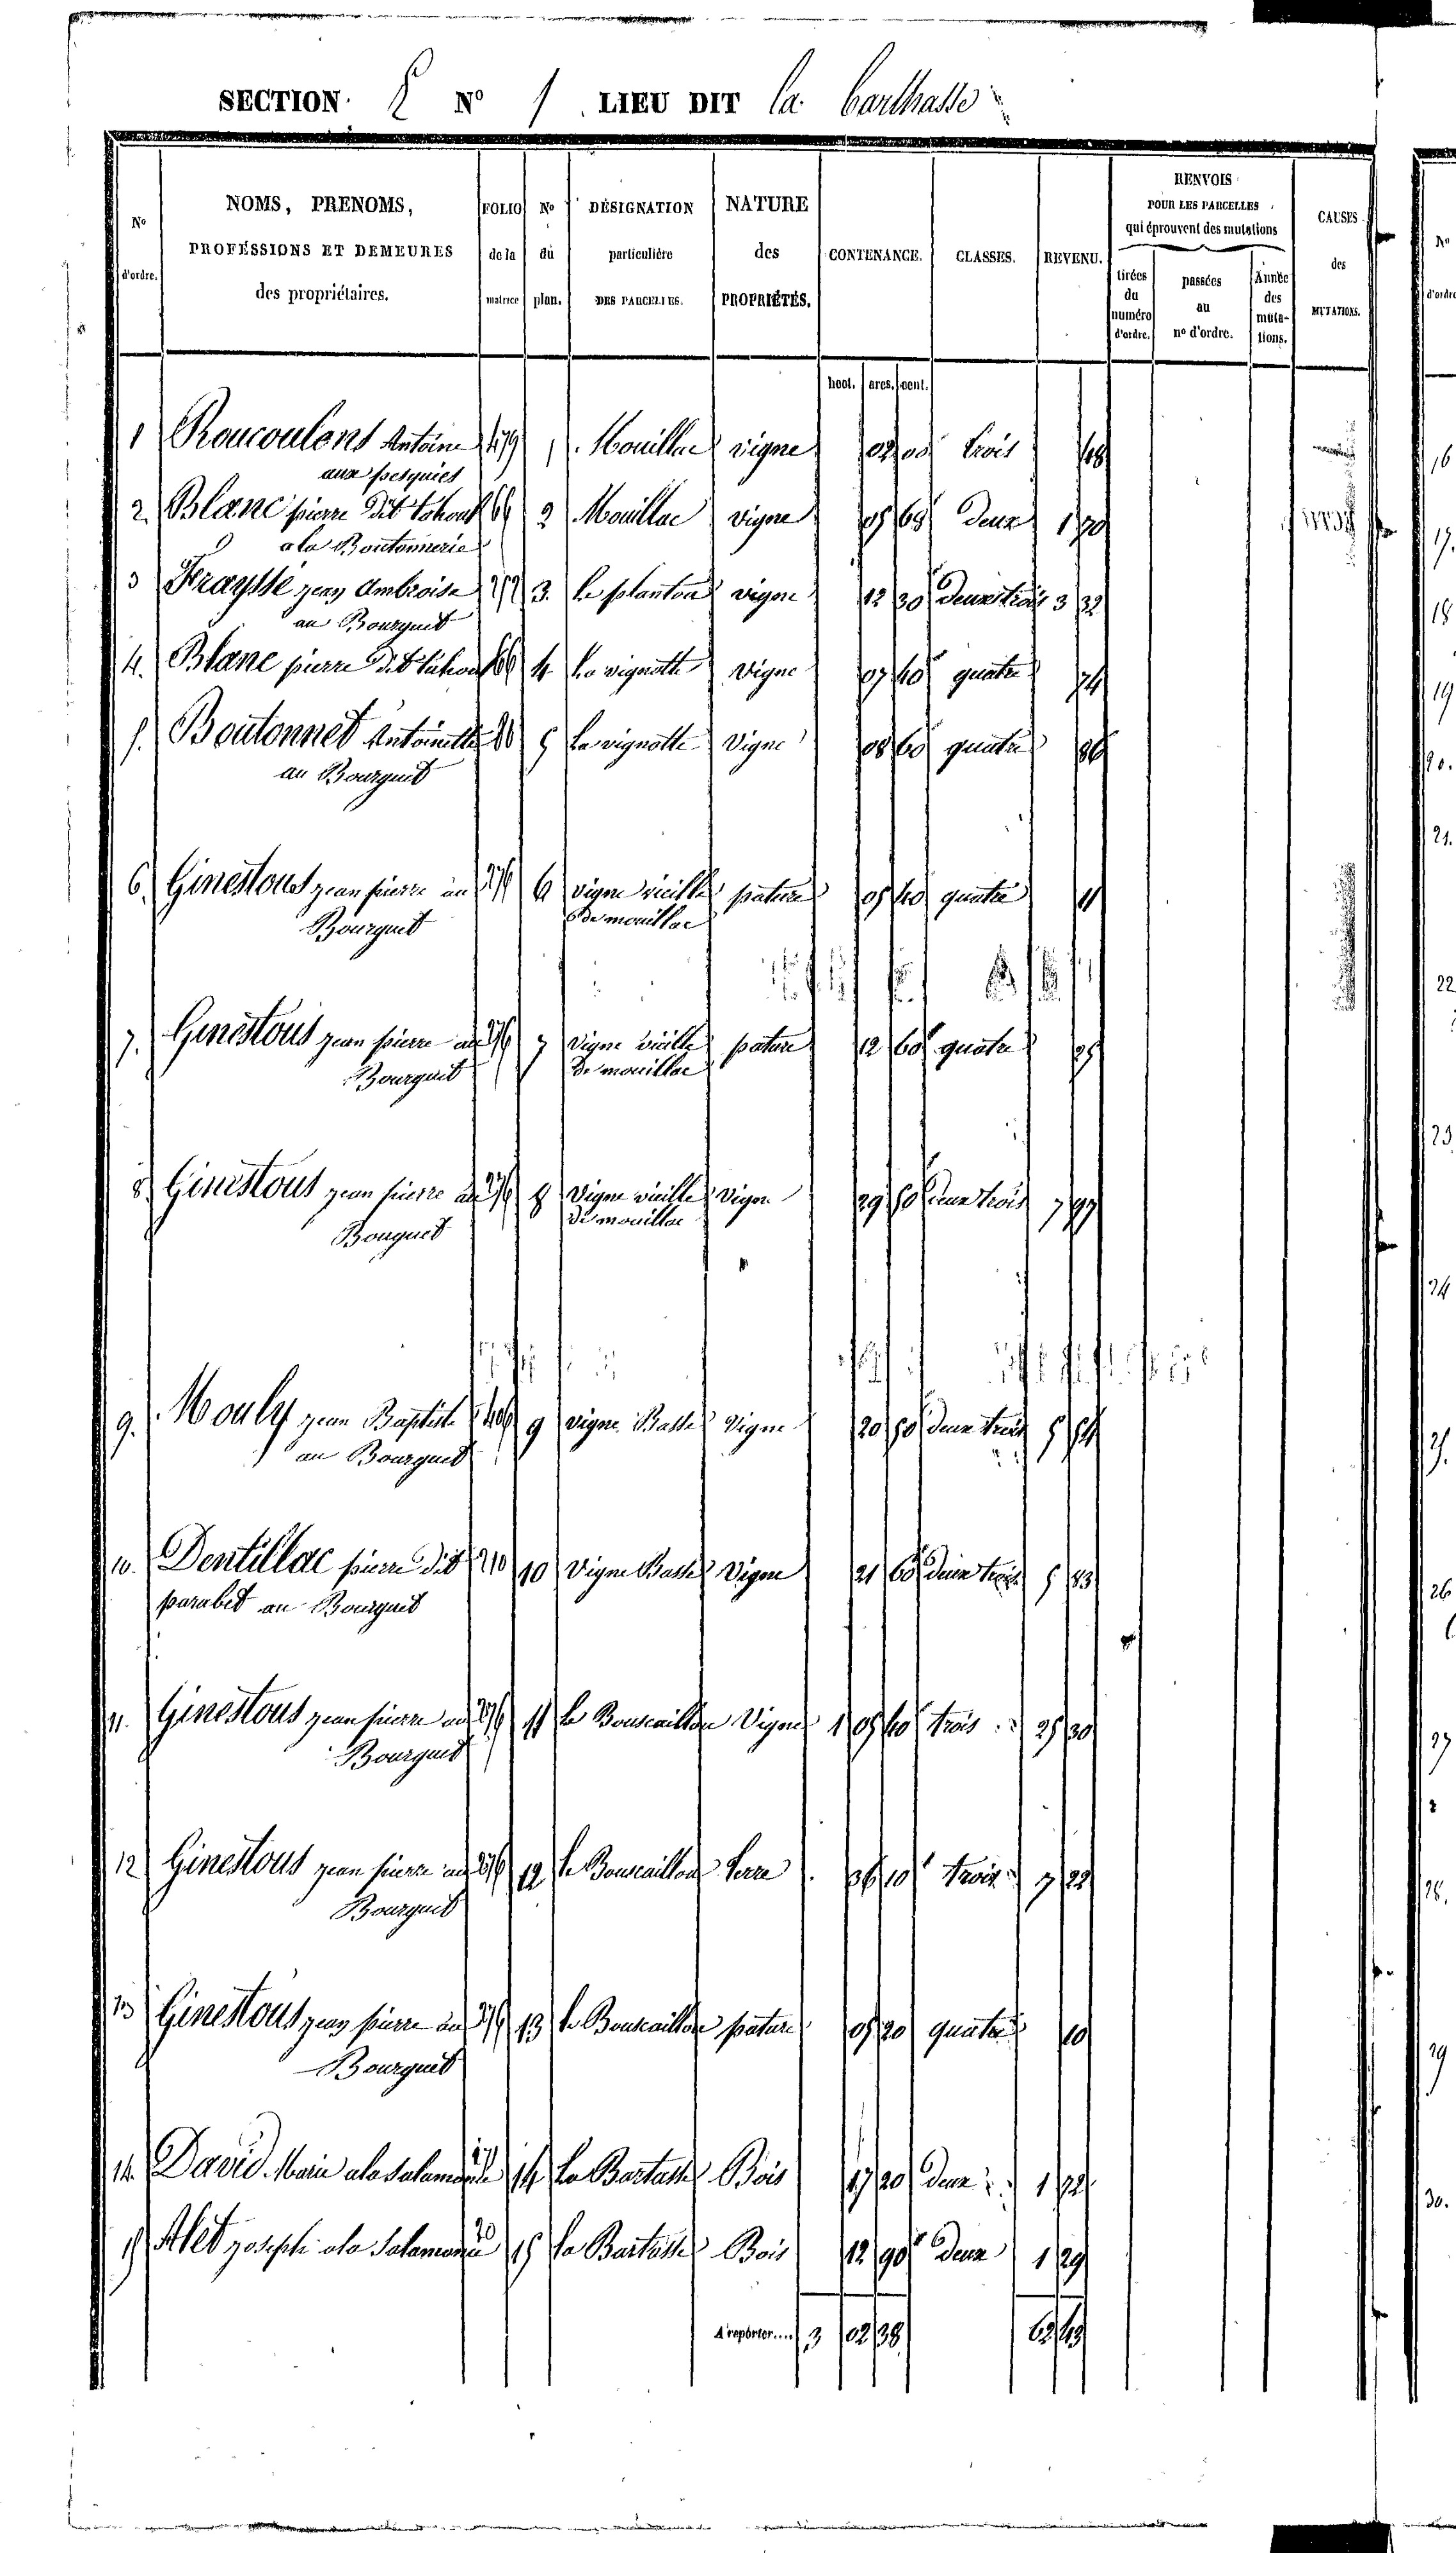 SECTION E N° 1 LIEU DIT la Barthasse
N° d'ordre. NOMS, PRENOMS, PROFESSIONS ET DEMEURES des propriétaires. FOLIO de la matrice N° du plan. DÉSIGNATION particulière DES PARCELLES. NATURE des PROPRIÉTÉS. CONTENANCE. CLASSES. REVENU. RENVOIS POUR LES PARCELLES qui éprouvent des mutations tirées du numéro d'ordre. passées au n° d'ordre. Année des mutations. CAUSES des MUTATIONS.
hect. ares. cent.
1 Roucoulens Antoine 479 1 Mouillac vigne 02 00 trois 48
aux pesquiés
2. Blanc pierre dit 66 2 Mouillac vigne 05 68 deux 1 70
a la Boutonnerie
3 Fraysse jean Ambroise 252 3. le planton vigne 12 30 deux trois 3 32
au Bourguet
4. Blanc pierre dit 66 4 la vignotte vigne 07 40 quatre 74
5. Boutonnet Antoinette 80 5 la vignotte vigne 08 60 quatre 86
au Bourguet
6. Ginestous jean pierre au 276 6 vigne vieille pature 05 40 quatre 11
Bourguet de mouillac
7. Ginestous jean pierre au 276 7 vigne vieille pature 12 60 quatre 25
Bourguet de mouillac
8 Ginestous jean pierre au 276 8 vigne vieille vigne 29 50 deux trois 7 97
Bouguet de mouillac
9. Mouly jean Baptiste 406 9 vigne Basse vigne 20 50 deux trois 5 54
au Bourguet
10. Dentillac pierre dit 210 10 vigne Basse vigne 21 60 deux trois 5 83
parabit au Bourguet
11. Ginestous jean pierre au 276 11 le Bouscaillou vigne 1 05 40 trois 25 30
Bourguet
12 Ginestous jean pierre au 276 12 le Bouscaillou terre 36 10 trois 7 22
Bourguet
13 Ginestous jean pierre au 276 13 le Bouscaillou pature 05 20 quatre 10
Bourguet
14. David Marie a la Salamonie 171 14 la Bartasse Bois 17 20 deux 1 72
15 Alet joseph a la Salamonie 20 15 la Bartasse Bois 12 90 deux 1 29
A reporter.... 3 02 38 62 43
N° d'ordre
16
17.
18
19
20.
21.
22
23
24
25.
26
27
28.
29
30.